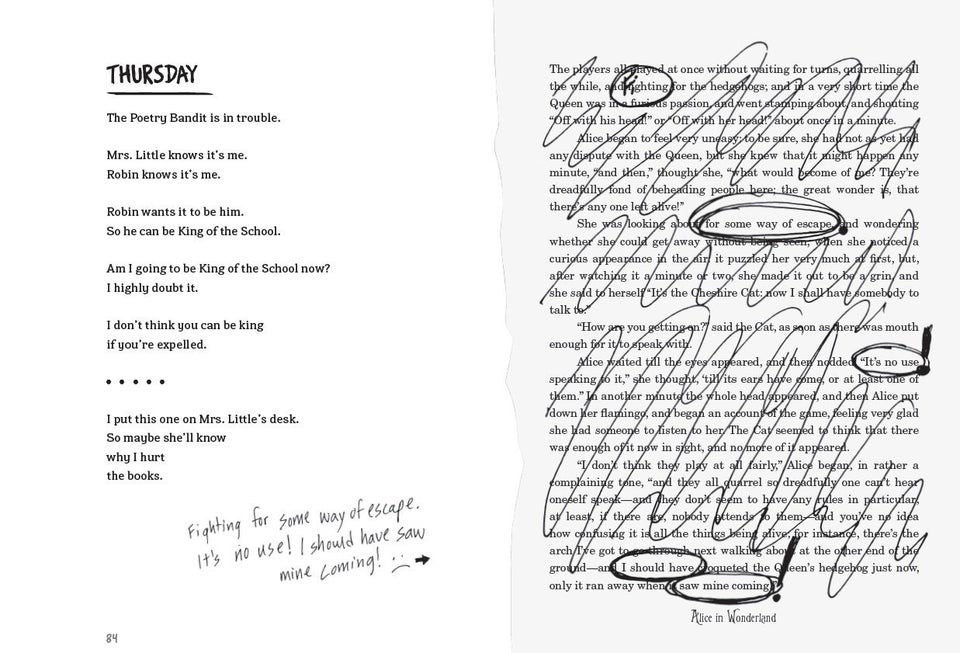 THURSDAY
The Poetry Bandit is in trouble.
Mrs. Little knows it's me.
Robin knows it's me.
Robin wants it to be him.
So he can be King of the School.
Am I going to be King of the School now?
I highly doubt it.
I don't think you can be king
if you're expelled.
I put this one on Mrs. Little's desk.
So maybe she'll know
why I hurt
the books.
Fighting for some way of escape.
It's no use! I should have saw
mine coming!
84
The players all played at once without waiting for turns, quarrelling all
the while, and Fighting for the hedgehogs; and in a very short time the
Queen was in a furious passion, and went stamping about, and shouting
“Off with his head!” or “Off with her head!” about once in a minute.
Alice began to feel very uneasy: to be sure, she had not as yet had
any dispute with the Queen, but she knew that it might happen any
minute, “and then,” thought she, “what would become of me? They're
dreadfully fond of beheading people here; the great wonder is, that
there's any one left alive!”
She was looking about for some way of escape, and wondering
whether she could get away without being seen, when she noticed a
curious appearance in the air: it puzzled her very much at first, but,
after watching it a minute or two, she made it out to be a grin, and
she said to herself “It's the Cheshire Cat: now I shall have somebody to
talk to.”
“How are you getting on?” said the Cat, as soon as there was mouth
enough for it to speak with.
Alice waited till the eyes appeared, and then nodded. “It's no use
speaking to it,” she thought, “till its ears have come, or at least one of
them.” In another minute the whole head appeared, and then Alice put
down her flamingo, and began an account of the game, feeling very glad
she had someone to listen to her. The Cat seemed to think that there
was enough of it now in sight, and no more of it appeared.
“I don't think they play at all fairly,” Alice began, in rather a
complaining tone, “and they all quarrel so dreadfully one can't hear
oneself speak—and they don't seem to have any rules in particular;
at least, if there are, nobody attends to them—and you've no idea
how confusing it is all the things being alive; for instance, there's the
arch I've got to go through next walking about at the other end of the
ground—and I should have croqueted the Queen's hedgehog just now,
only it ran away when it saw mine coming!”
Alice in Wonderland